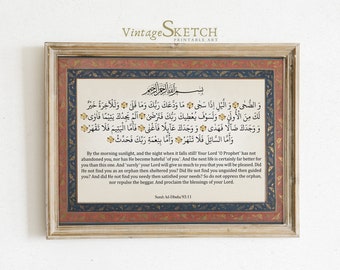 VintageSKETCH
PRINTABLE ART
بِسْمِ اللَّهِ الرَّحْمَٰنِ الرَّحِيمِ
وَ الضُّحَىٰ وَ الَّيْلِ إِذَا سَجَىٰ مَا وَدَّعَكَ رَبُّكَ وَمَا قَلَىٰ وَلَلْآخِرَةُ خَيْرٌ
لَكَ مِنَ الْأُولَىٰ وَلَسَوْفَ يُعْطِيكَ رَبُّكَ فَتَرْضَىٰ أَلَمْ يَجِدْكَ يَتِيمًا فَآوَىٰ
وَ وَجَدَكَ ضَالًّا فَهَدَىٰ وَ وَجَدَكَ عَآئِلًا فَأَغْنَىٰ فَأَمَّا الْيَتِيمَ فَلَا تَقْهَرْ
وَ أَمَّا السَّآئِلَ فَلَا تَنْهَرْ وَأَمَّا بِنِعْمَةِ رَبِّكَ فَحَدِّثْ
By the morning sunlight, and the night when it falls still! Your Lord 'O Prophet' has not
abandoned you, nor has He become hateful 'of you'. And the next life is certainly far better for
you than this one. And 'surely' your Lord will give so much to you that you will be pleased. Did
He not find you as an orphan then sheltered you? Did He not find you unguided then guided
you? And did He not find you needy then satisfied your needs? So do not oppress the orphan,
nor repulse the beggar. And proclaim the blessings of your Lord.
Surah Ad-Dhuha 93:1-11